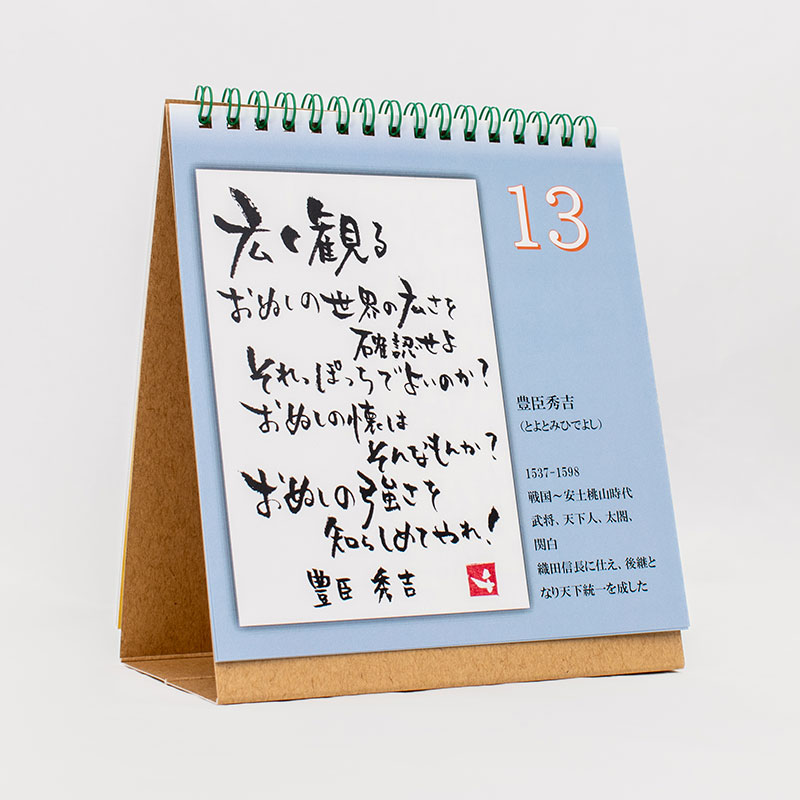 13
広く観る
おぬしの世界の広さを
確認せよ
それっぽっちでよいのか?
おぬしの懐は
そんなもんか?
おぬしの強さを
知らしめてやれ!
豊臣 秀吉
豊臣秀吉
(とよとみひでよし)
1537-1598
戦国～安土桃山時代
武将、天下人、太閤、
関白
織田信長に仕え、後継と
なり天下統一を成した